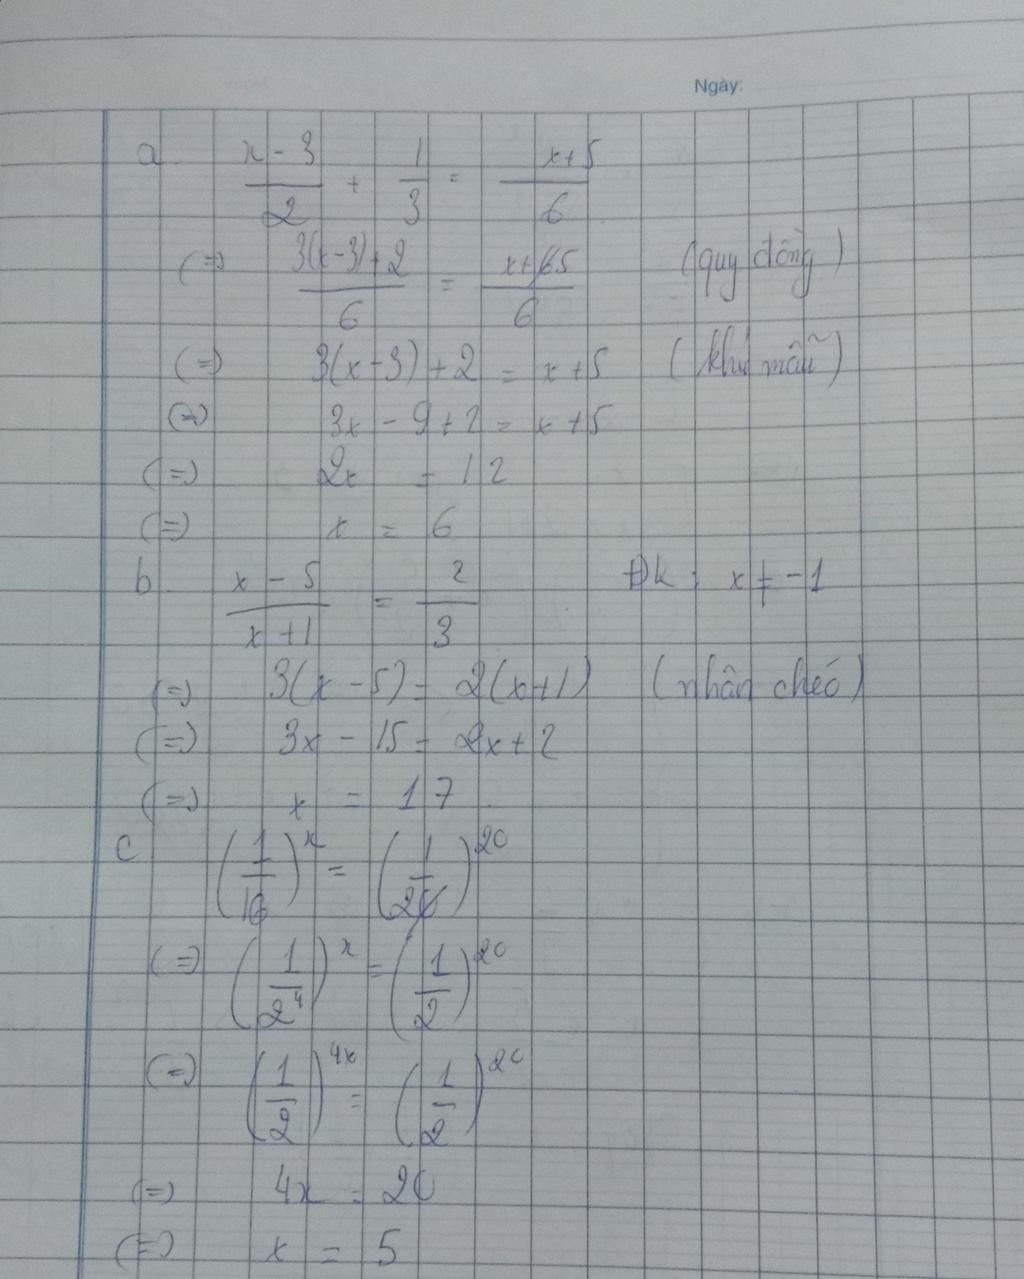 Ngày:
a (x-3)/2 + 1/3 = (x+5)/6
(=) (3(x-3)+2)/6 = (x+5)/6 (quy đồng)
(=) 3(x-3)+2 = x+5 (khử mẫu)
(=) 3x - 9 + 2 = x + 5
(=) 2x = 12
(=) x = 6
b (x-5)/(x+1) = 2/3 Đk: x ≠ -1
(=) 3(x-5) = 2(x+1) (nhân chéo)
(=) 3x - 15 = 2x + 2
(=) x = 17
c (1/16)^x = (1/2)^20
(=) (1/2^4)^x = (1/2)^20
(=) (1/2)^4x = (1/2)^20
(=) 4x = 20
(=) x = 5